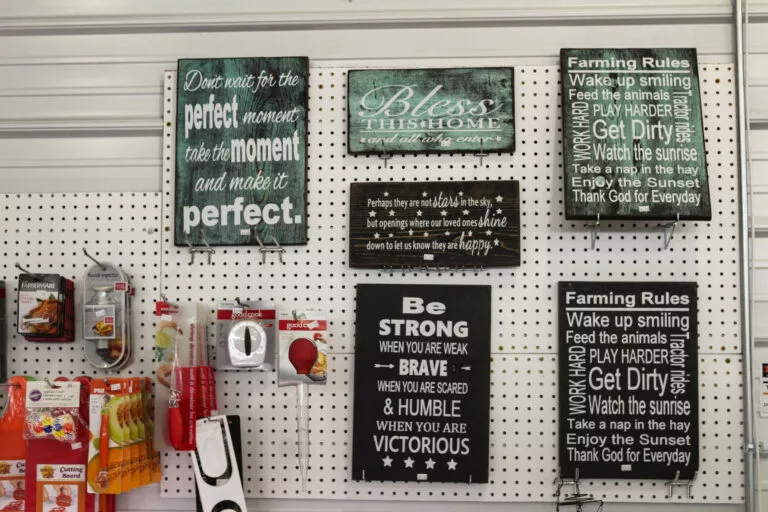 Don't wait for the
perfect moment
take the moment
and make it
perfect.
Bless
THIS HOME
and all who enter
Perhaps they are not stars in the sky,
but openings where our loved ones shine
down to let us know they are happy.
Be
STRONG
WHEN YOU ARE WEAK
BRAVE
WHEN YOU ARE SCARED
& HUMBLE
WHEN YOU ARE
VICTORIOUS
Farming Rules
Wake up smiling
Feed the animals
WORK HARD
PLAY HARDER
Tractor rides
Get Dirty
Watch the sunrise
Take a nap in the hay
Enjoy the Sunset
Thank God for Everyday
Farming Rules
Wake up smiling
Feed the animals
WORK HARD
PLAY HARDER
Tractor rides
Get Dirty
Watch the sunrise
Take a nap in the hay
Enjoy the Sunset
Thank God for Everyday
FARBERWARE
good cook
good cook
Cutting
Board
Cutting
Board